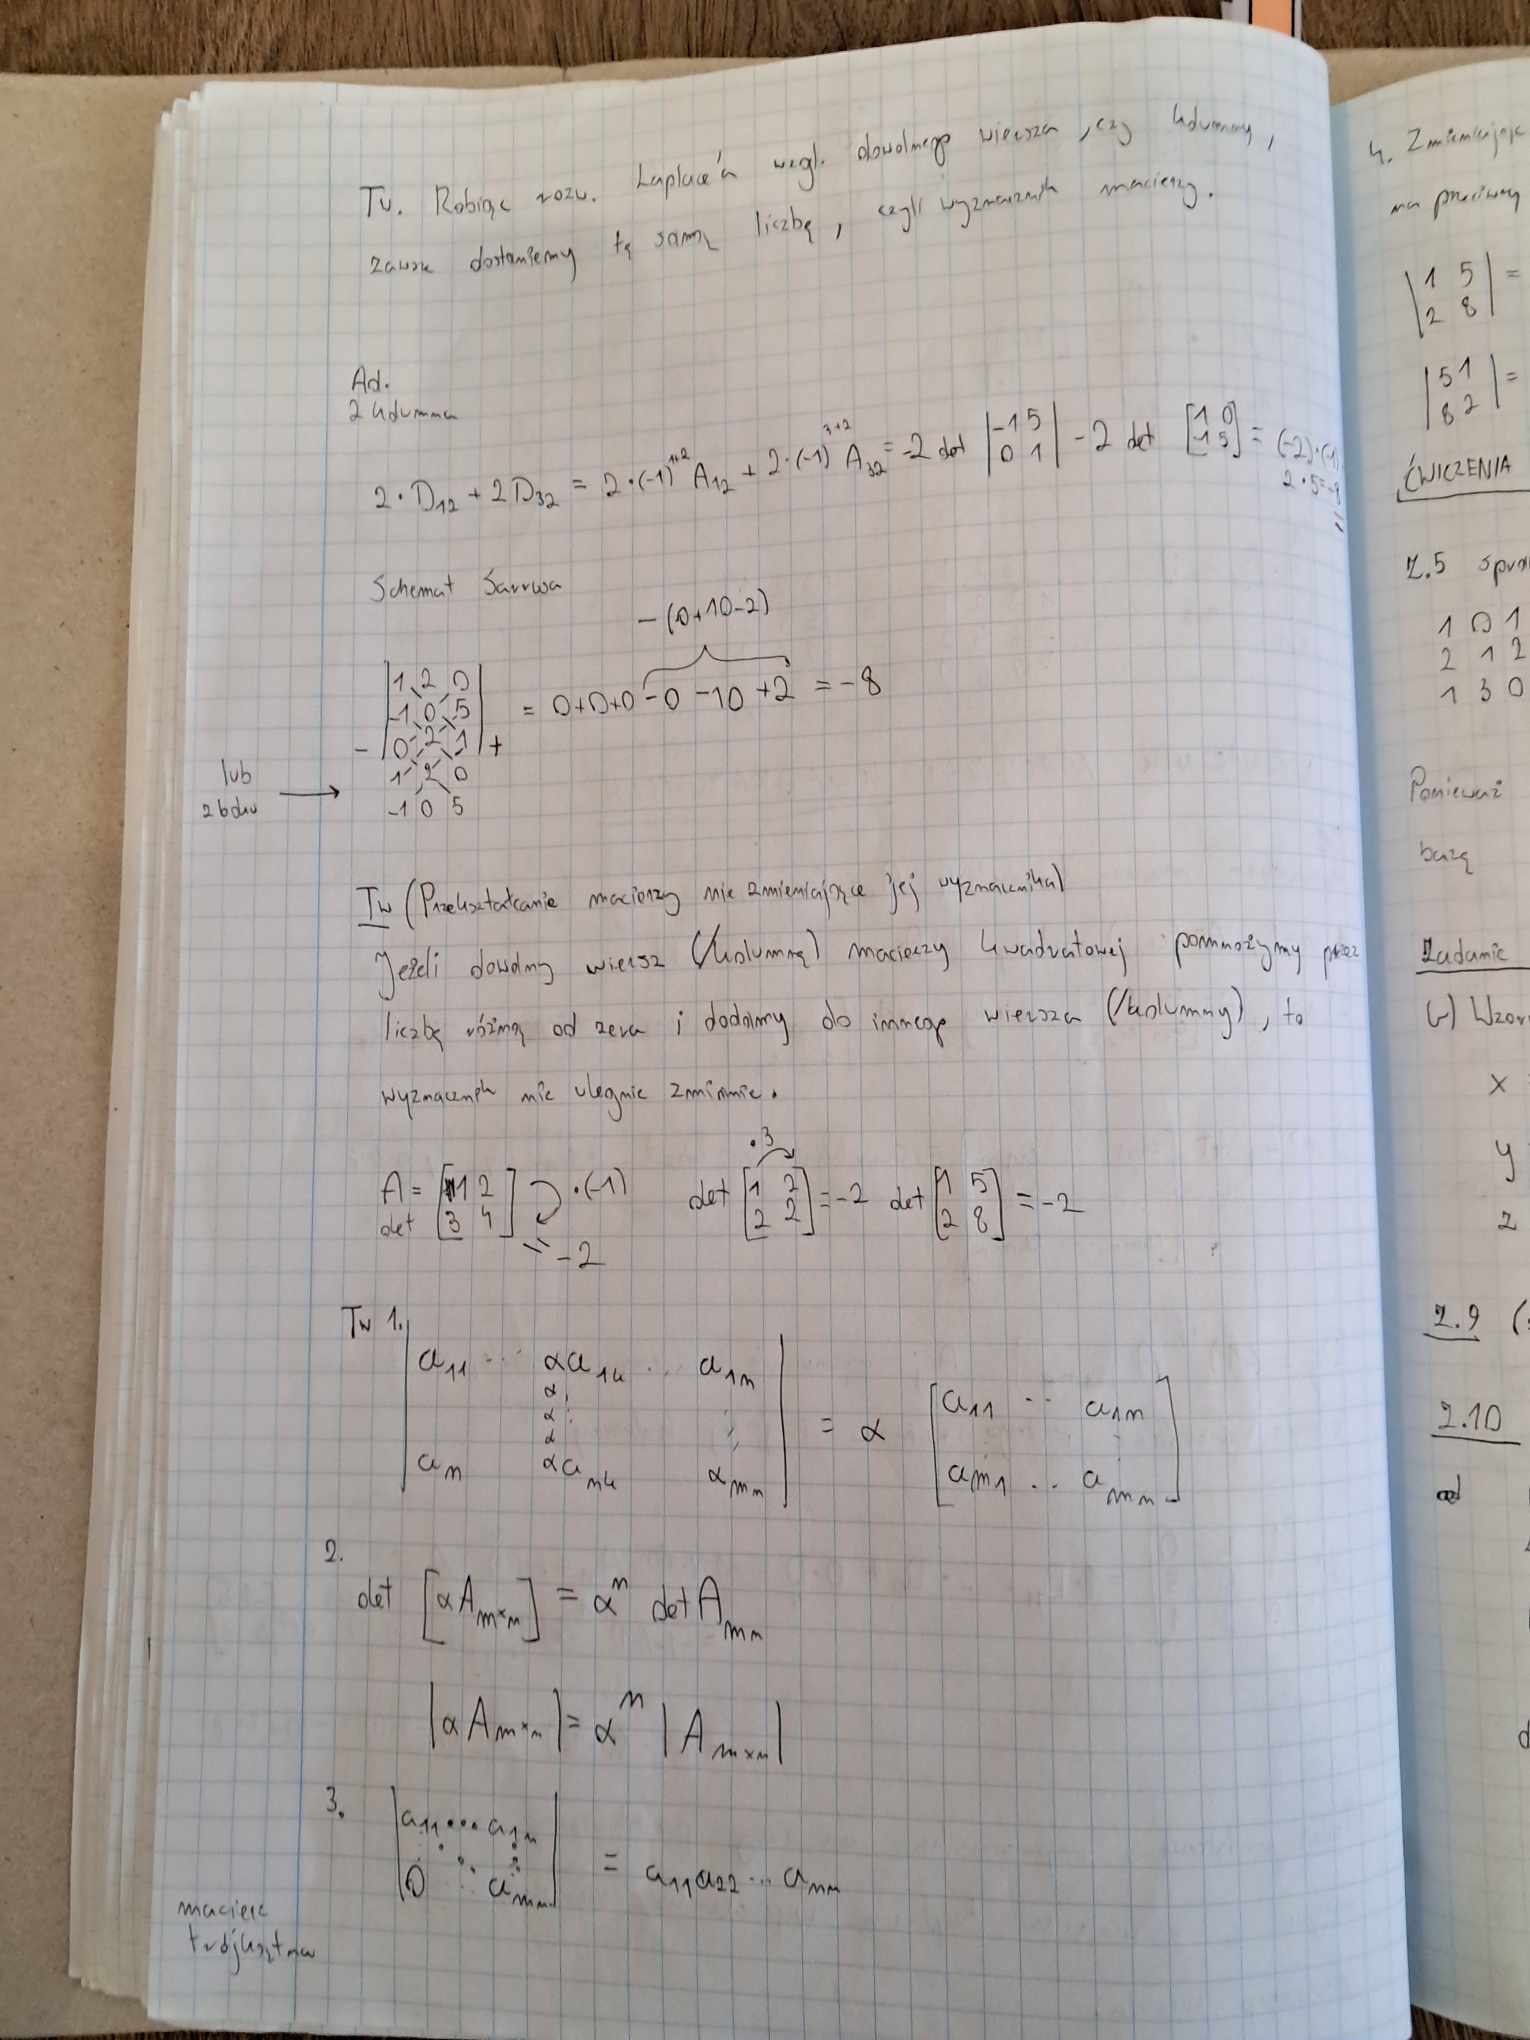 Tw. Robiąc rozw. Laplace'a wzgl. dowolnego wiersza, czy kolumny,
zawsze dostaniemy tę samą liczbę, czyli wyznacznik macierzy.
Ad.
2 kolumna
2 · D₁₂ + 2D₃₂ = 2·(-1)¹⁺² A₁₂ + 2·(-1)³⁺² A₃₂ = -2 det |-1 5| - 2 det [1 0] = (-2)·(-1)
0 1 -1 5 2·5=-8
Schemat Sarrusa
-(0+10-2)
|1 2 0|
|-1 0 5| = 0+0+0 -0 -10 +2 = -8
- |0 2 1| +
lub 1 2 0
z boku → -1 0 5
Tw (Przekształcanie macierzy nie zmieniające jej wyznacznika)
Jeżeli dowolny wiersz (/kolumnę) macierzy kwadratowej pomnożymy przez
liczbę różną od zera i dodamy do innego wiersza (/kolumny), to
wyznacznik nie ulegnie zmianie.
·3
A = [1 2] ·(-1) det [1 2] = -2 det [1 5] = -2
det [3 4] = -2 [2 2] [2 8]
Tw 1.
a₁₁ ... αa₁ₖ ... a₁ₙ
α
α = α [a₁₁ ... a₁ₙ]
α [aₙ₁ ... aₙₙ]
aₙ αaₙₖ aₙₙ
2.
det [αAₙₓₙ] = αⁿ det Aₙₙ
|αAₙₓₙ| = αⁿ |Aₙₓₙ|
3. |a₁₁ ... a₁ₙ|
|0 ... aₙₙ| = a₁₁a₂₂ ... aₙₙ
macierz
trójkątna
4. Zmieniając
na przeciwny
|1 5| =
|2 8|
|5 1| =
|8 2|
ĆWICZENIA
2.5
1 0 1
2 1 2
1 3 0
Ponieważ
bazą
Zadanie
x
y
z
2.9
2.10